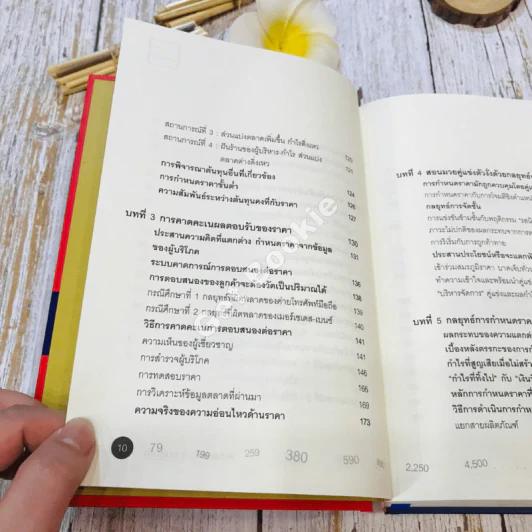 สถานการณ์ที่ 3 : ส่วนแบ่งตลาดเพิ่มขึ้น กำไรดิ่งเหว 120
สถานการณ์ที่ 4 : ฝันร้านของผู้บริหาร-กำไร ส่วนแบ่ง
ตลาดต่างดิ่งเหว
การพิจารณาต้นทุนอื่นที่เกี่ยวข้อง 124
การกำหนดราคาขั้นต่ำ 126
ความสัมพันธ์ระหว่างต้นทุนคงที่กับราคา 127
บทที่ 3 การคาดคะเนผลตอบรับของราคา 130
ประสานความคิดที่แตกต่าง กำหนดราคาจากข้อมูล
ของผู้บริโภค
ระบบคาดการณ์การตอบสนองต่อราคา
การตอบสนองของลูกค้าจะต้องวัดเป็นปริมาณได้ 138
กรณีศึกษาที่ 1 กลยุทธ์ที่ผิดพลาดของค่ายโทรศัพท์มือถือ 138
กรณีศึกษาที่ 2 กลยุทธ์ที่ผิดพลาดของเมอร์เซเดส-เบนซ์ 139
วิธีการคาดคะเนการตอบสนองต่อราคา 141
ความเห็นของผู้เชี่ยวชาญ 141
การสำรวจผู้บริโภค 146
การทดสอบราคา 166
การวิเคราะห์ข้อมูลตลาดที่ผ่านมา 169
ความจริงของความอ่อนไหวด้านราคา 173
10 79 199 259 380 590
บทที่ 4 สอนมวยคู่แข่งตัวจังด้วยกลยุทธ์
การกำหนดราคามักถูกควบคุมโดย
กลยุทธ์การจัดชั้น
การแข่งขันข้ามชั้นกับพฤติกรรม
ภาวะไม่ปกติของผลกระทบจากการ
การโต้แย้งกับการถูกท้าทาย
ประสานประโยชน์หรือจะแตกหัก
เข้าร่วมสมรภูมิราคา
ทำความเข้าใจและพร้อมนำคู่แข่ง
"บริหารจัดการ" คู่แข่งและ
บทที่ 5 กลยุทธ์การกำหนดราคา
ผลกระทบของความแตกต่าง
เบื้องหลังตรรกะของการ
กำไรที่สูญเสียเมื่อไม่สร้าง
"กำไรที่ทิ้งไป" กับ
หลักการกำหนดราคาที่
วิธีการดำเนินการกำหนด
แยกสายผลิตภัณฑ์
2,250 4,500